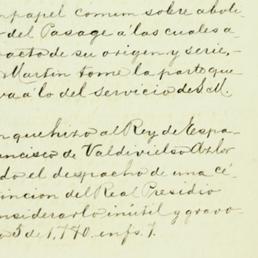 papel comun sobre abole
del Pasage á las cuales a
pacto de su origen y serie,
Martin tome la parte que
va á lo del servicio de S.M.
que hizo al Rey de Espa
ancisco de Valdivielso Azlor
do el despacho de una cé
tincion del Real Presidio
onsiderarlo inútil y gravo
3 de 1,770. en fs. 7.